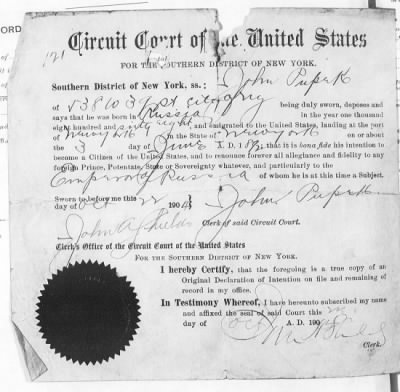 ORD
121
Circuit Court of the United States
FOR THE SOUTHERN DISTRICT OF NEW YORK.
Southern District of New York, ss.: John Pupek
of 538 10 3 st city being duly sworn, deposes and
says that he was born in Russia in the year one thousand
eight hundred and sixty eight, and emigrated to the United States, landing at the port
of New york in the State of New york on or about
the 3 day of June A. D. 18 ; that it is bona fide his intention to
become a Citizen of the United States, and to renounce forever all allegiance and fidelity to any
foreign Prince, Potentate, State or Sovereignty whatever, and particularly to the
Emperor of Russia of whom he is at this time a Subject.
Sworn to before me this John Pupek
day of Oct 22 190
John A Shields Clerk of said Circuit Court.
Clerk's Office of the Circuit Court of the United States
FOR THE SOUTHERN DISTRICT OF NEW YORK.
I hereby Certify, that the foregoing is a true copy of an
Original Declaration of Intention on file and remaining of
record in my office.
In Testimony Whereof, I have hereunto subscribed my name
and affixed the seal of said Court this 22
day of Oct A. D. 190
Clerk.